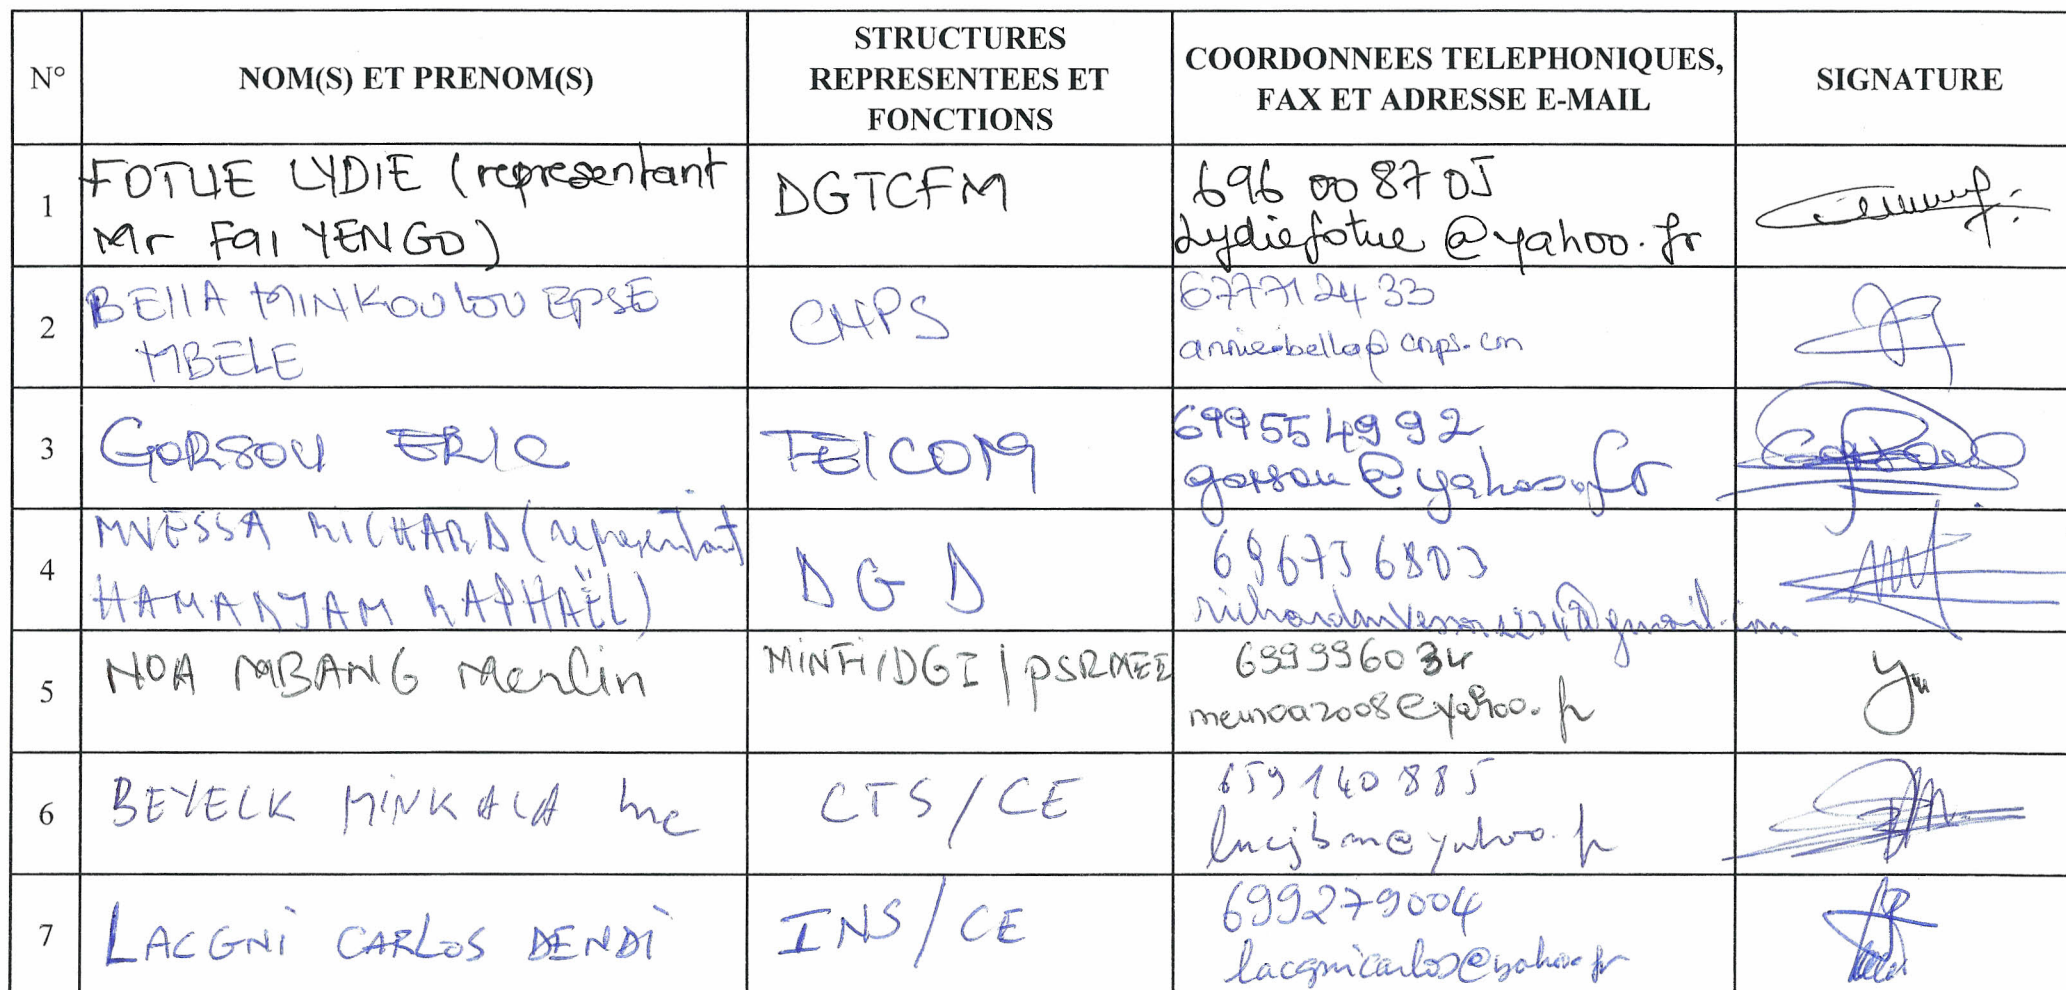 N°
NOM(S) ET PRENOM(S)
STRUCTURES
REPRESENTEES ET
FONCTIONS
COORDONNEES TELEPHONIQUES,
FAX ET ADRESSE E-MAIL
SIGNATURE
1
FOTUE LYDIE (representant
Mr FAI YENGO)
DGTCFM
696 00 87 05
Lydiefotue@yahoo.fr
2
BEllA MINKOULOU EPSE
MBELE
CNPS
677712433
annie.bella@cnps.cm
3
GORSOU ERIC
FEICOM
699554992
gorsou@yahoo.fr
4
MVESSA RICHARD (representant
HAMADJAM RAPHAËL)
DGD
696756803
5
NOA MBANG Merlin
MINFI/DGI/PSRMEE
699996034
mernoa2008@yahoo.fr
6
BEYELK MINKALA Luc
CTS/CE
659140885
lucjbm@yahoo.fr
7
LACGNi CARLOS DENDi
INS/CE
699279004
lacgnicarlos@yahoo.fr